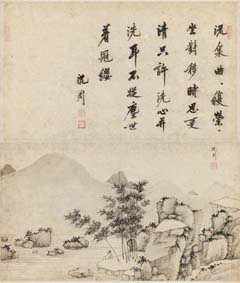 流泉曲〻復縈〻
坐對移時思更
清只許洗心并
洗耳不從塵世
著冠纓
沈周
沈周